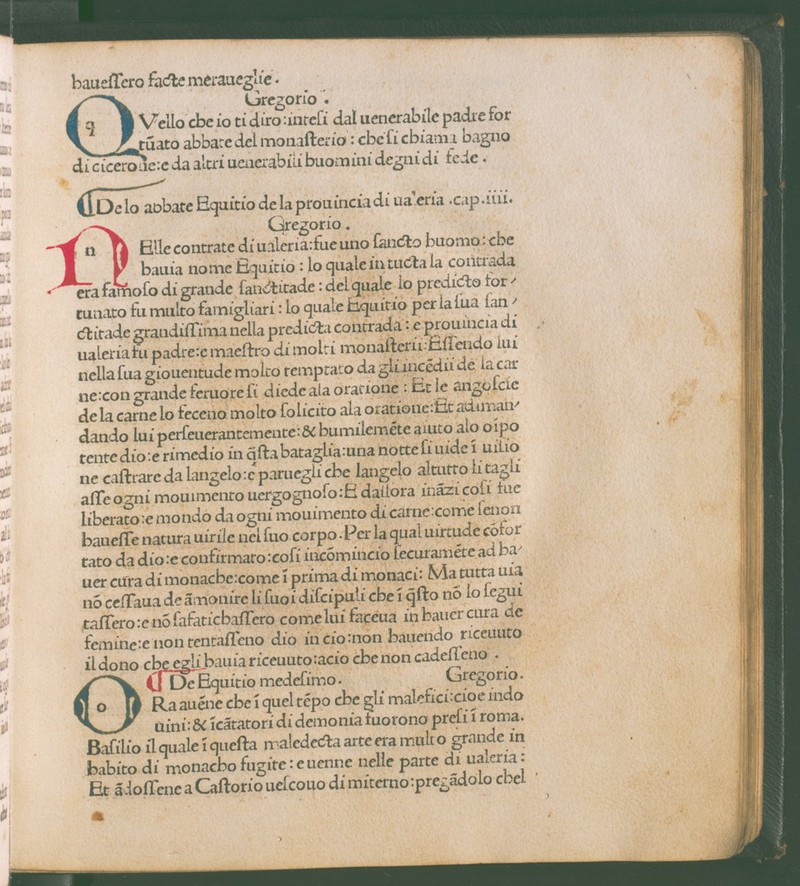 haueſſero facte meraueglie.
Gregorio.
QVello che io ti diro:inteſi dal uenerabile padre for
tũato abbate del monaſterio: che ſi chiama bagno
di cicerone:e da altri uenerabili huomini degni di fede.
De lo abbate Equitio de la prouincia di ualeria.cap.iiii.
Gregorio.
nElle contrate di ualeria:fue uno ſancto huomo: che
hauia nome Equitio: lo quale in tucta la contrada
era famoſo di grande ſanctitade: del quale lo predicto for-
tunato fu multo famigliari: lo quale Equitio per la ſua ſan-
ctitade grandiſſima nella predicta contrada: e prouincia di
ualeria fu padre:e maeſtro di molti monaſterii:Eſſendo lui
nella ſua giouentude molto temptato da gli incẽdii de la car
ne:con grande feruore ſi diede ala oratione: Et le angoſcie
de la carne lo feceno molto ſolicito ala oratione:Et adiman-
dando lui perſeuerantemente:& humilemẽte aiuto alo oĩpo
tente dio:e rimedio in q̃ſta bataglia:una notte ſi uide ĩ uiſio
ne caſtrare da langelo:e paruegli che langelo altutto li tagli
aſſe ogni mouimento uergognoſo:E dallora inãzi coſi fue
liberato:e mondo da ogni mouimento di carne:come ſenon
haueſſe natura uirile nel ſuo corpo.Per la qual uirtude cõfor
tato da dio:e confirmato:coſi incõmincio ſecuramẽte ad ha-
uer cura di monache:come ĩ prima di monaci: Ma tutta uia
nõ ceſſaua de ãmonire li ſuoi diſcipuli che ĩ q̃ſto nõ lo ſegui
taſſero:e nõ ſafatichaſſero come lui faceua in hauer cura de
femine:e non tentaſſeno dio in cio:non hauendo riceuuto
il dono che egli hauia riceuuto:acio che non cadeſſeno.
De Equitio medeſimo. Gregorio.
oRa auẽne che ĩ quel tẽpo che gli malefici:cioe indo
uini:& ĩcãtatori di demonia fuorono preſi ĩ roma.
Baſilio il quale ĩ queſta maledecta arte era multo grande in
habito di monacho fugite: e uenne nelle parte di ualeria:
Et ãdoſſene a Caſtorio ueſcouo di miterno:pregãdolo chel